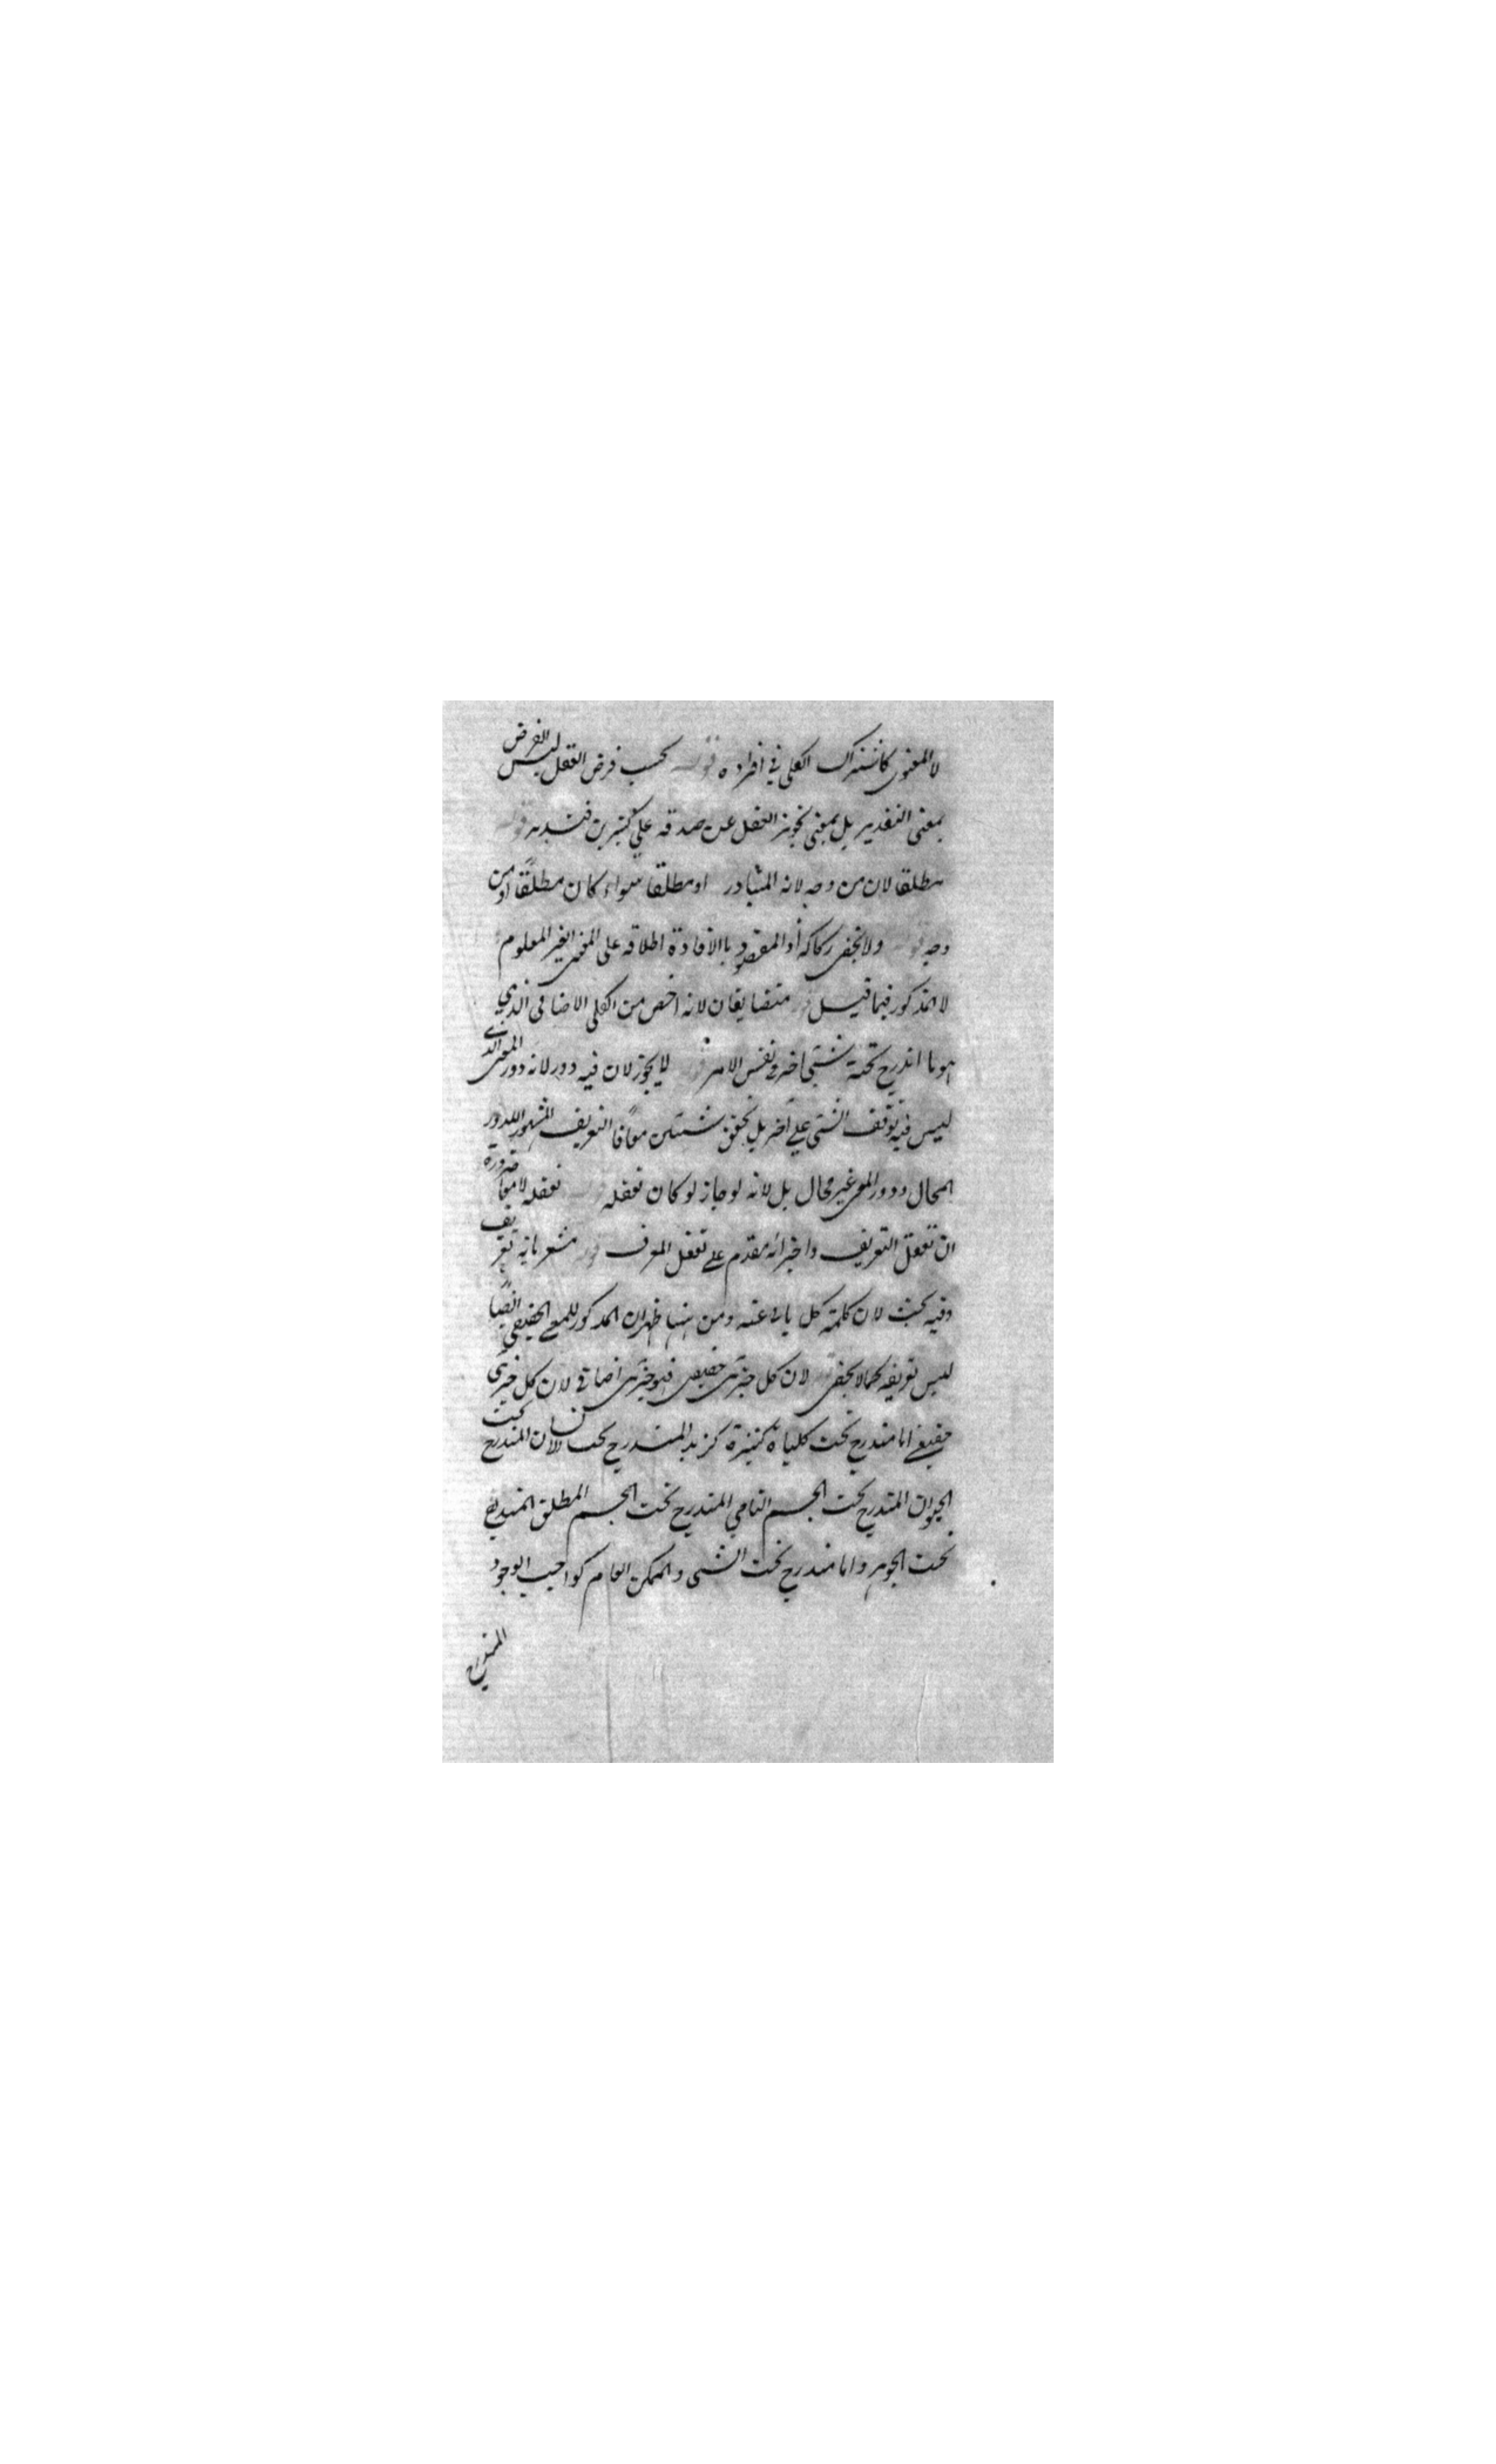 لا المعنوى كاشتراك الكلى في افراده قوله بحسب فرض العقل ليس الفرض
بمعنى التقدير بل بمعنى تجويز العقل عن صدقه على كثيرين فتدبر قوله
مطلقا لان من وجه لانه المتبادر او مطلقا سواء كان مطلقًا او من
وجه قوله ولا يخفى ركاكة اذ المقصود بالافادة اطلاقه على المعنى الغير المعلوم
لا المذكور فيما قيل قوله متضايفان لانه اخص من الكلى الاضافى الذي
هو ما اندرج تحته شئى اخر فى نفس الامر قوله لا يجوز لان فيه دور لانه دور المعى الذي
ليس فيه توقف الشئى على آخر بل تحقق شيئين معًا فى التعريف المشهور اللدور
المحال ودور المعى غير محال بل لانه لو جاز لو كان تعقله قوله تعقله لا معا ضرورة
ان تعقل التعريف واجزائه مقدم على تعقل المعرف قوله مشعر بانه تعريف
وفيه بحث لان كلمة كل يأبى عنه ومن ههنا ظهر ان المذكور للمعنى الحقيقي ايضًا
ليس تعريفه كما لا يخفى قوله لان كل جزئى حقيقى فهو جزئى اضافي لان كل جزئى
حقيقي اما مندرج تحت كلياة كثيرة كزيد المندرج تحت الانسان المندرج تحت
الحيوان المندرج تحت الجسم النامي المندرج تحت الجسم المطلق المندرج
تحت الجوهر واما مندرج تحت الشئى والممكن العام كواجب الوجود